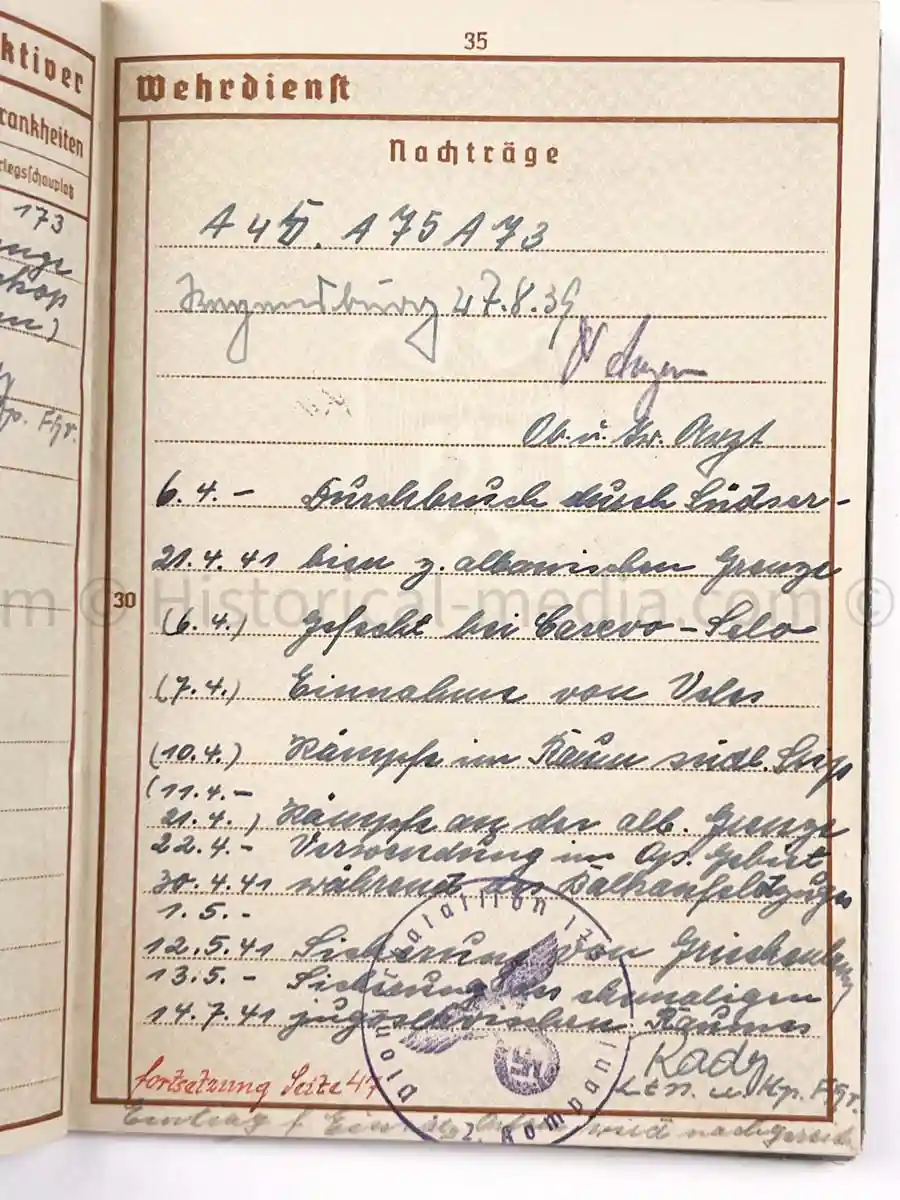 ktiver
rankheiten
riegsschauplatz
173
35
Wehrdienst
Nachträge
A 75 A 73
Regensburg 47.8.39
Ob. u. Tr. Arzt
6.4. - Durchbruch durch Südser-
21.4.41 bien z. albanischen Grenze
30
(6.4.) Gefecht bei Carevo-Selo
(7.4.) Einnahme von Veles
(10.4.) Kämpfe im Raum südl.
(11.4.-
21.4.) Kämpfe an der alb. Grenze
22.4. - Verwendung im Op. Gebiet
30.4.41 während des Balkanfeldzuges
1.5. -
12.5.41 Sicherung von Griechenland
13.5. - Sicherung des ehemaligen
14.7.41 jugoslavischen Raumes
Kady
Ltn. u. Kp. Fhr.
Fortsetzung Seite 47
Eintrag
2. Kompanie
p. Fhr.
© Historical-media.com ©